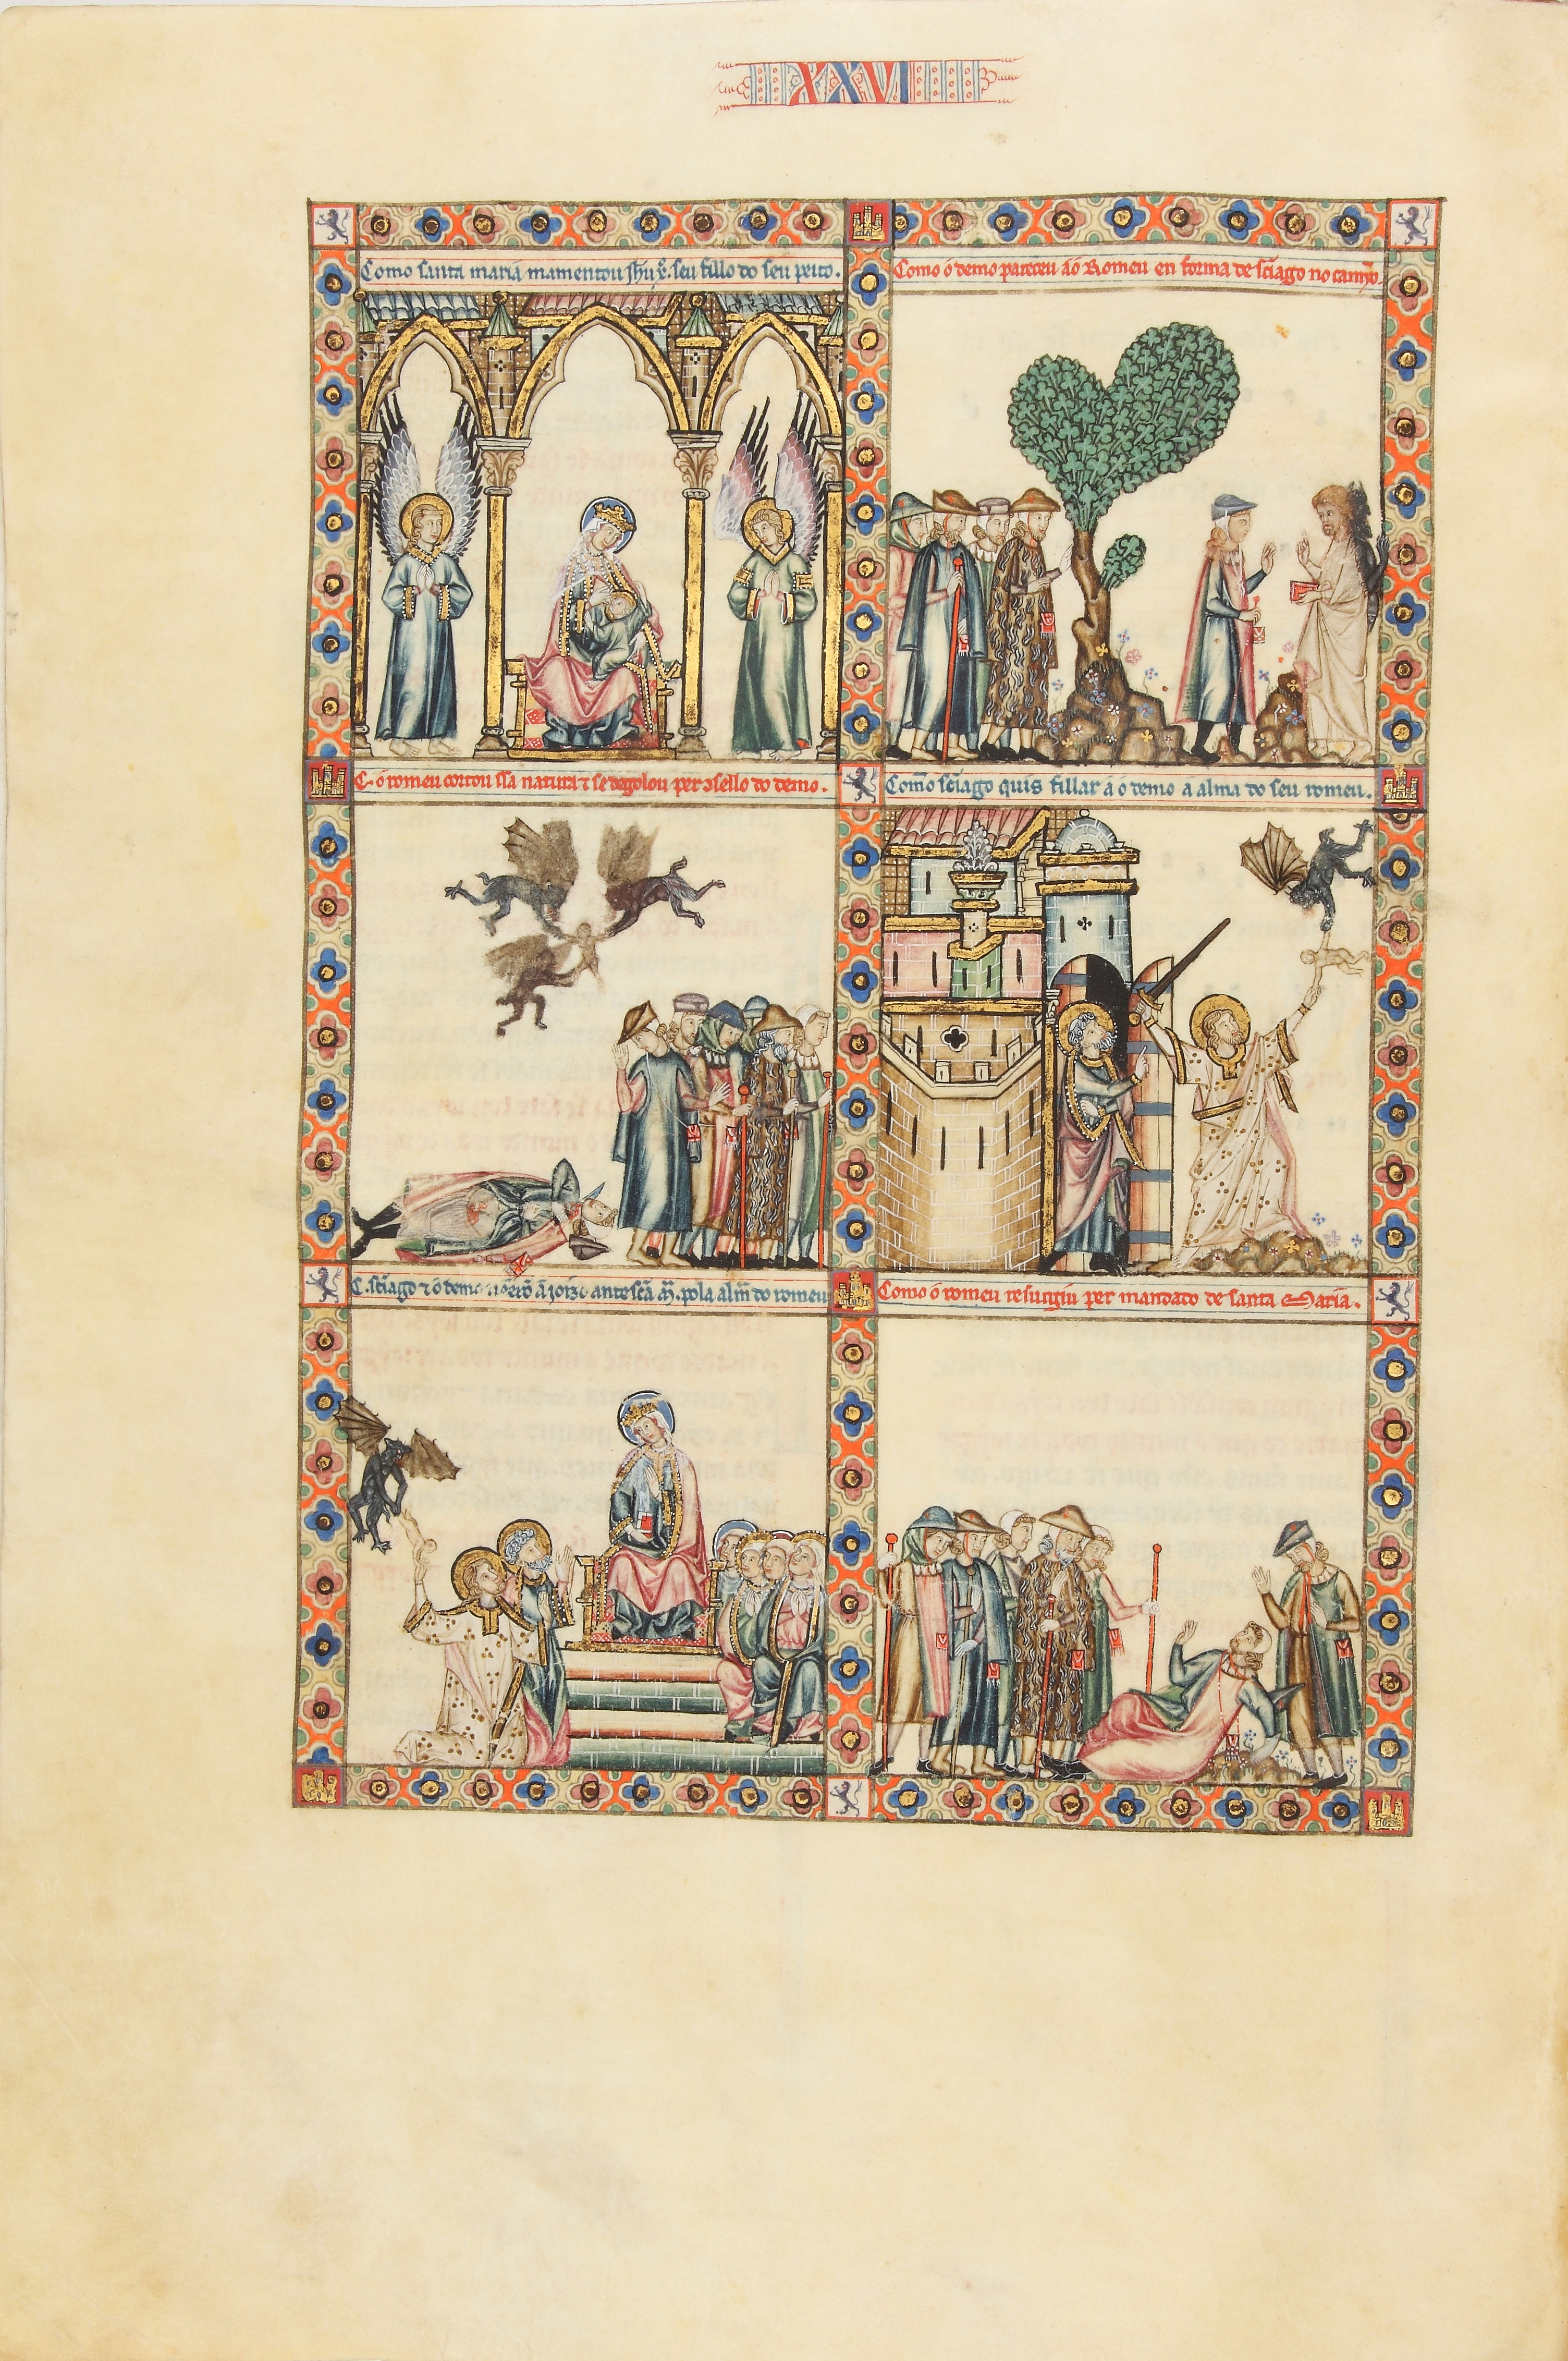 XXVI
Como santa maria mamentou ih̃u x̃. seu fillo do seu peito.
Como o demo pareceu áó Romeu en forma de sc̃iago no camỹo.
C. o romeu cortou ssa natura ⁊ se degolou per ↄsello do demo.
Comõ sc̃iago quis fillar á ó demo á alma do seu romeu.
C. sc̃iago ⁊ o demo ante sc̃a m̃. pola alm̃ do romeu
Como ó romeu resurgiu per mandado de santa Maria.